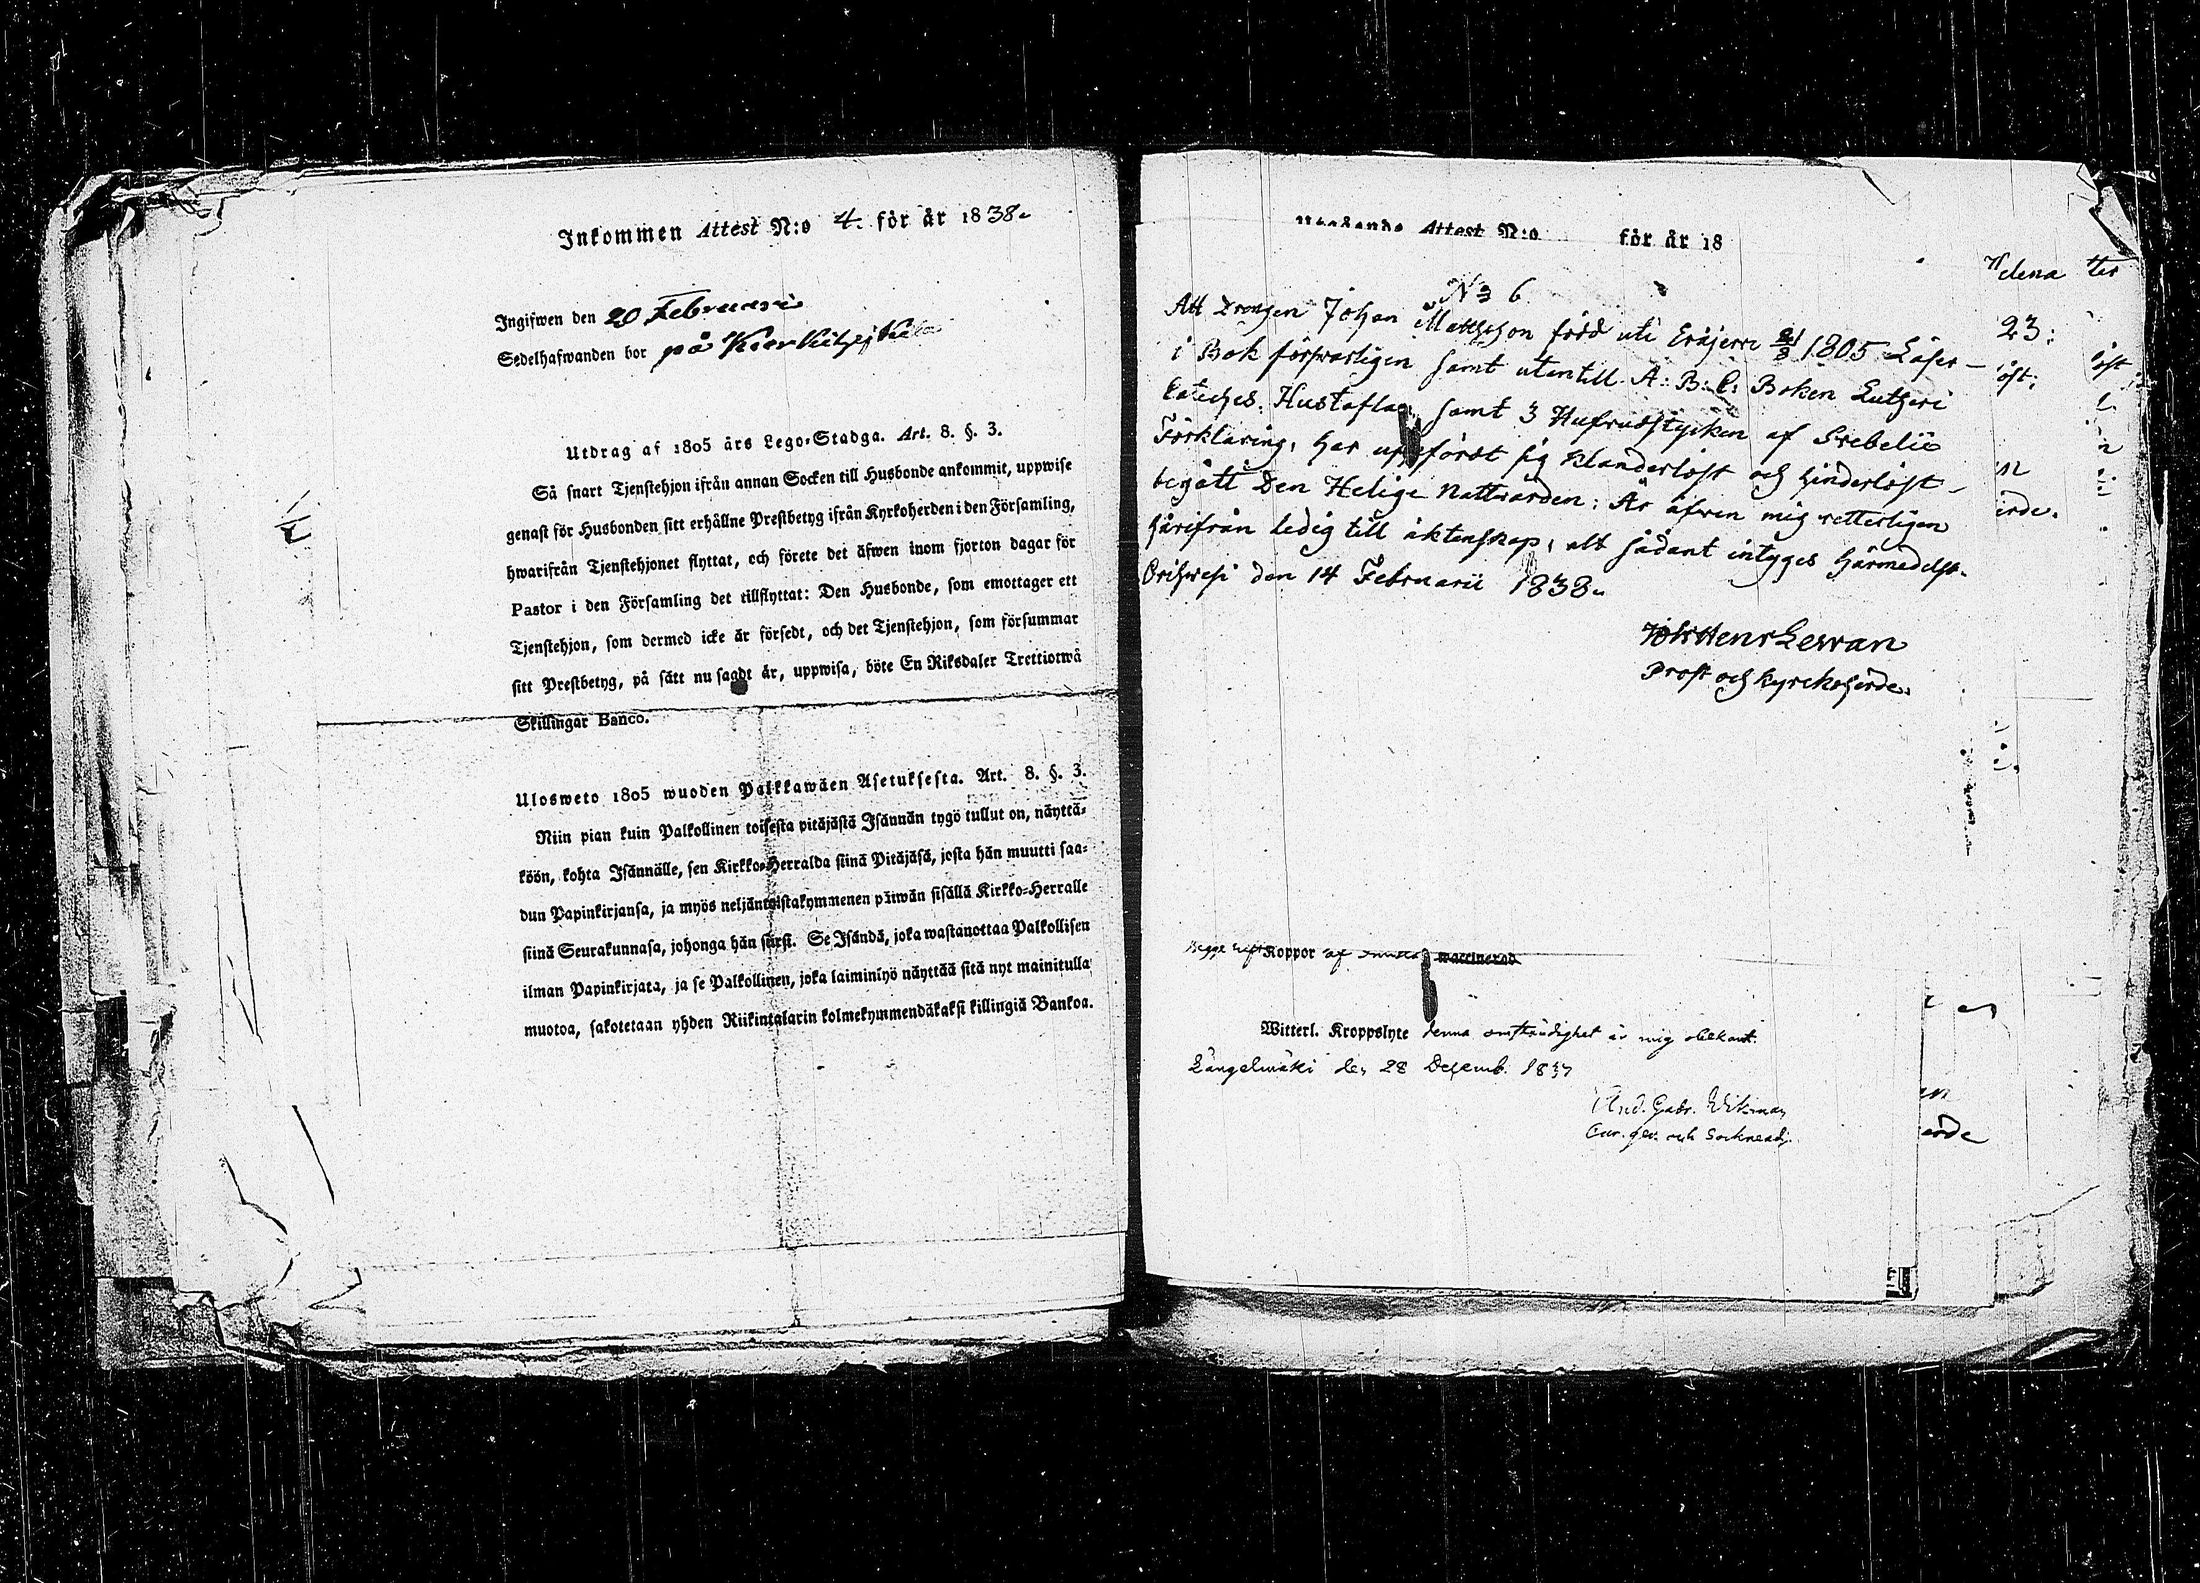 Inkommen Attest N:o 4. för år 1838.
Ingifwen den 20 Februari
Sedelhafwanden bor på
Utdrag af 1805 års Lego-Stadga. Art. 8. §. 3.
Så snart Tjenstehjon ifrån annan Socken till Husbonde ankommit, uppwise
genast för Husbonden sitt erhållne Prestbetyg ifrån Kyrkoherden i den Församling,
hwarifrån Tjenstehjonet flyttat, och förete det äfwen inom fjorton dagar för
Pastor i den Församling det tillflyttat: Den Husbonde, som emottager ett
Tjenstehjon, som dermed icke är försedt, och det Tjenstehjon, som försummar
sitt Prestbetyg, på sätt nu sagdt är, uppwisa, böte En Riksdaler Trettiotwå
Skillingar Banco.
Ulosweto 1805 wuoden Palkkawäen Asetuksesta. Art. 8. §. 3.
Niin pian kuin Palkollinen toisesta pitäjästä Isännän tygö tullut on, näyttä-
köön, kohta Isännälle, sen Kirkko-Herralda siinä Pitäjäsä, josta hän muutti saa-
dun Papinkirjansa, ja myös neljäntoistakymmenen päiwän sisällä Kirkko-Herralle
siinä Seurakunnasa, johonga hän siirsi. Se Isändä, joka wastanottaa Palkollisen
ilman Papinkirjata, ja se Palkollinen, joka laiminlyö näyttää sitä nyt mainitulla
muotoa, sakotetaan yhden Riikintalarin kolmekymmendäkaksi killingiä Bankoa.
Utgående Attest N:o för år 18
No 6
Att Drengen Johan Mattsson född uti Eräjerwi 1805 Läser
i Bok förswarligen samt utantill A: B: C: Boken Lutheri
Cateches. Hustaflan samt 3 Hufwudstycken af Swebelii
Förklaring, har uppfördt sig klanderlöst och hinderlöst
begått Den Helige Nattvarden: Är äfven mig vetterligen
härifrån ledig till äktenskap, alt sådant intygges härmedelst.
Orihwesi den 14 Februarii 1838.
Joh Henr Lewan
Prost och kyrckoherde.
Helena
23:
öst;
öst
Begge haft Koppor af waccinerad
Witterl. Kroppslyte denna omständighet är mig obekant.
Längelmäki den 28 Decemb. 1837
And. Gabr.
och Socknead.